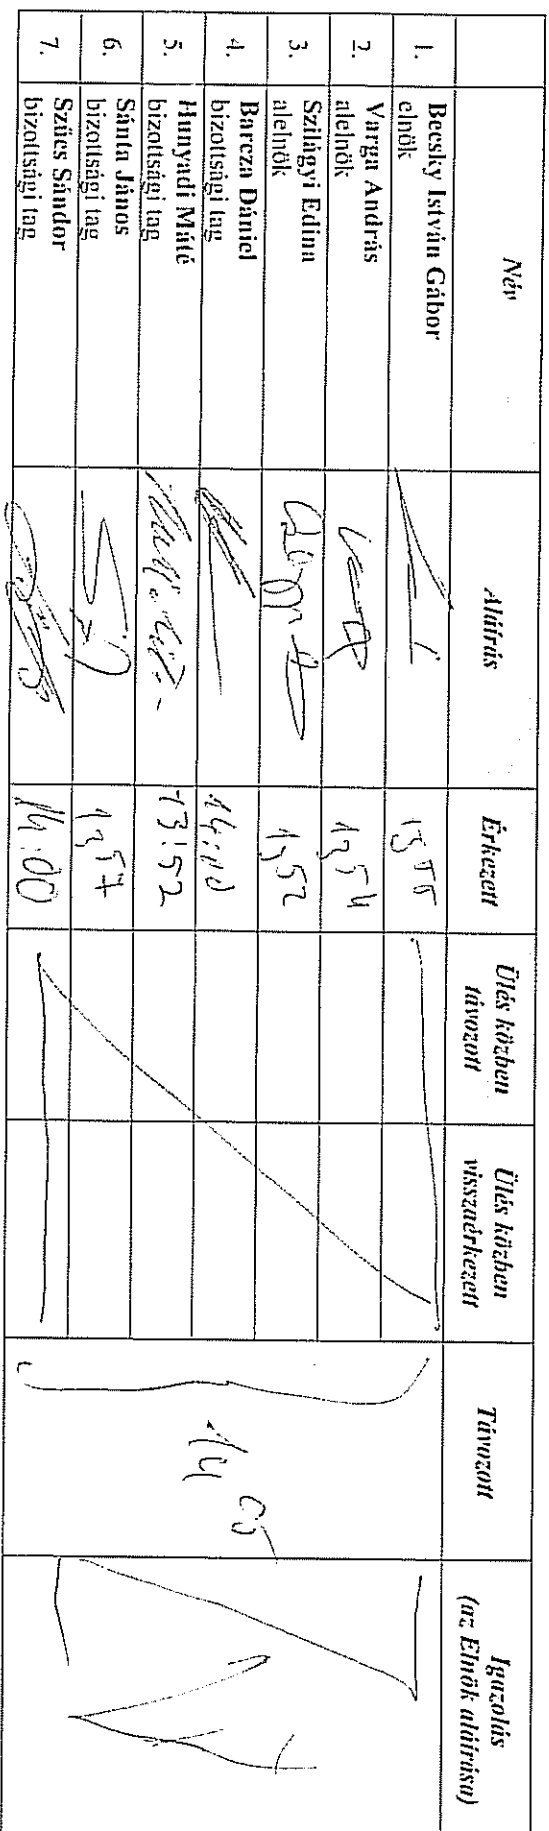 Név Aláírás Érkezett Ülés közben távozott Ülés közben visszaérkezett Távozott Igazolás (az Elnök aláírása)
1. Becsky István Gábor
elnök
2. Varga András 13 54
alelnök
3. Szilágyi Edina 13 52
alelnök
4. Barcza Dániel 14:00
bizottsági tag
5. Hunyadi Máté 13:52
bizottsági tag
6. Sánta János 13 57
bizottsági tag
7. Szűcs Sándor 14:00
bizottsági tag